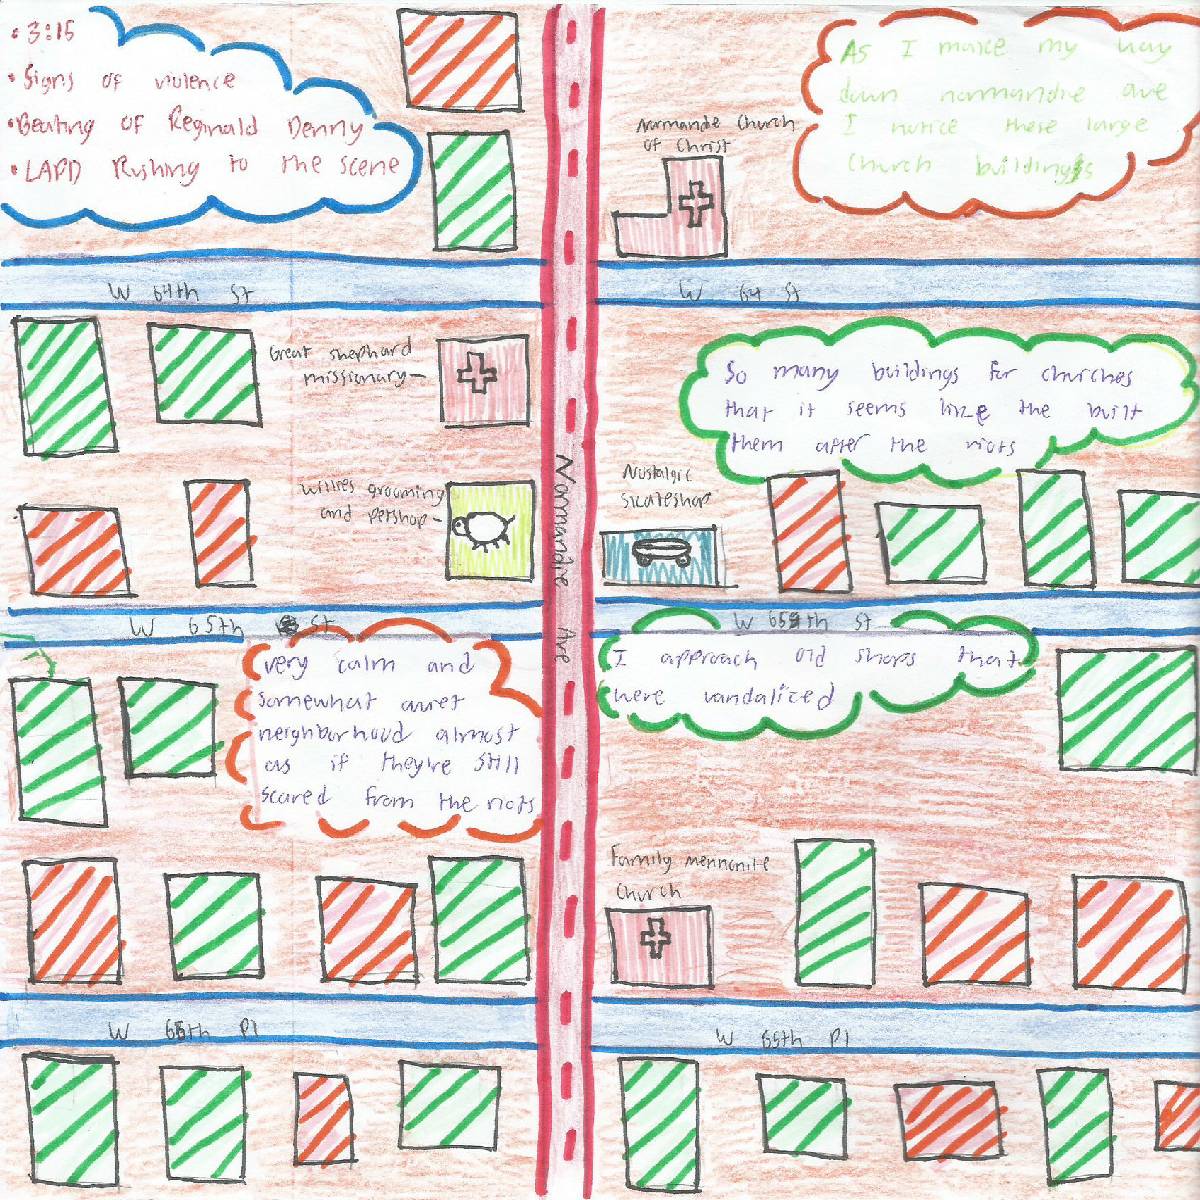 • 3:15
• Signs of violence
• Beating of Reginald Denny
• LAPD Rushing to the scene
As I make my way
down normandie ave
I notice these large
church buildings
Normandie Church
of Christ
W 64th St
W 64 St
Great shephard
missionary—
So many buildings for churches
that it seems like the built
them after the riots
Willies grooming
and petshop—
Nostalgic
skateshop
Normandie Ave
W 65th St
W 65th St
very calm and
somewhat quiet
neighborhood almost
as if they're still
scared from the riots
I approach old shops that
were vandalized
Family mennonite
Church
W 65th Pl
W 65th Pl